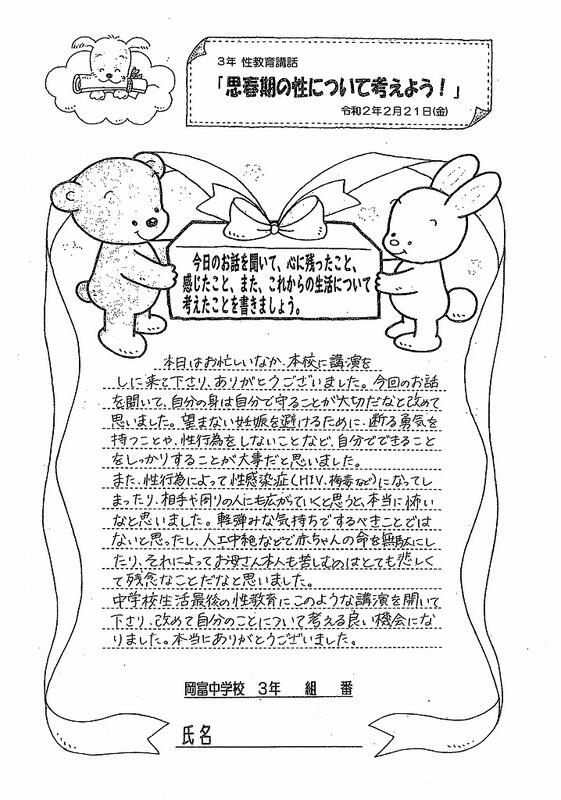 3年 性教育講話
「思春期の性について考えよう！」
令和2年2月21日(金)
今日のお話を聞いて、心に残ったこと、
感じたこと、また、これからの生活について
考えたことを書きましょう。
本日はお忙しいなか、本校に講演を
しに来て下さり、ありがとうございました。今回のお話
を聞いて、自分の身は自分で守ることが大切だなと改めて
思いました。望まない妊娠を避けるために、断る勇気を
持つことや、性行為をしないことなど、自分でできること
をしっかりすることが大事だと思いました。
また、性行為によって性感染症(HIV、梅毒など)になってし
まったり、相手や周りの人にも広がっていくと思うと、本当に怖い
なと思いました。軽弾みな気持ちでするべきことでは
ないと思ったし、人工中絶などで赤ちゃんの命を無駄にし
たり、それによってお母さん本人も苦しむのはとても悲しく
て残念なことだなと思いました。
中学校生活最後の性教育にこのような講演を開いて
下さり、改めて自分のことについて考える良い機会にな
りました。本当にありがとうございました。
岡富中学校 3年 組 番
氏名